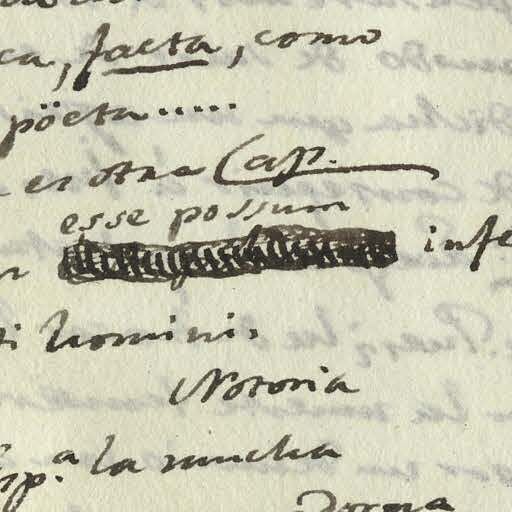 ca, facta, como
pöeta.....
er otra Cap.
esse possum
infe
ti homini.
Notoria
Esp.ª la mucha